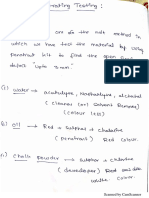 rating Testing :
are do the ndt method in
which we have test the material by using
penetrant kit to find the open
defect "upto 5mm".
(i) water → acetodyne, Naptholyne, alchohol
(cleaner (or) Solvent Remover)
(colour less)
(ii) oil → Red + sulphur + chaloride
(penetrant) Red colour.
(iii) Chalk powder → sulphur + chaloride
(developer) Red
white colour.
Scanned by CamScanner